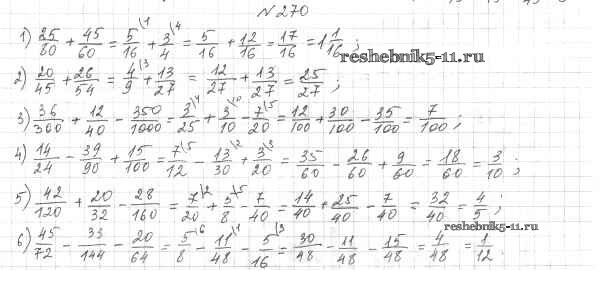 №270
1) 25/80 + 45/60 = 5/16 \1 + 3/4 \4 = 5/16 + 12/16 = 17/16 = 1 1/16 ;
reshebnik5-11.ru
2) 20/45 + 26/54 = 4/9 \3 + 13/27 = 12/27 + 13/27 = 25/27 ;
3) 36/300 + 12/40 - 350/1000 = 3/25 \4 + 3/10 \10 - 7/20 \5 = 12/100 + 30/100 - 35/100 = 7/100 ;
4) 14/24 - 39/90 + 15/100 = 7/12 \5 - 13/30 \2 + 3/20 \3 = 35/60 - 26/60 + 9/60 = 18/60 = 3/10 ;
5) 42/120 + 20/32 - 28/160 = 7/20 \2 + 5/8 \5 - 7/40 = 14/40 + 25/40 - 7/40 = 32/40 = 4/5 ;
reshebnik5-11.ru
6) 45/72 - 33/144 - 20/64 = 5/8 \6 - 11/48 \1 - 5/16 \3 = 30/48 - 11/48 - 15/48 = 4/48 = 1/12 .